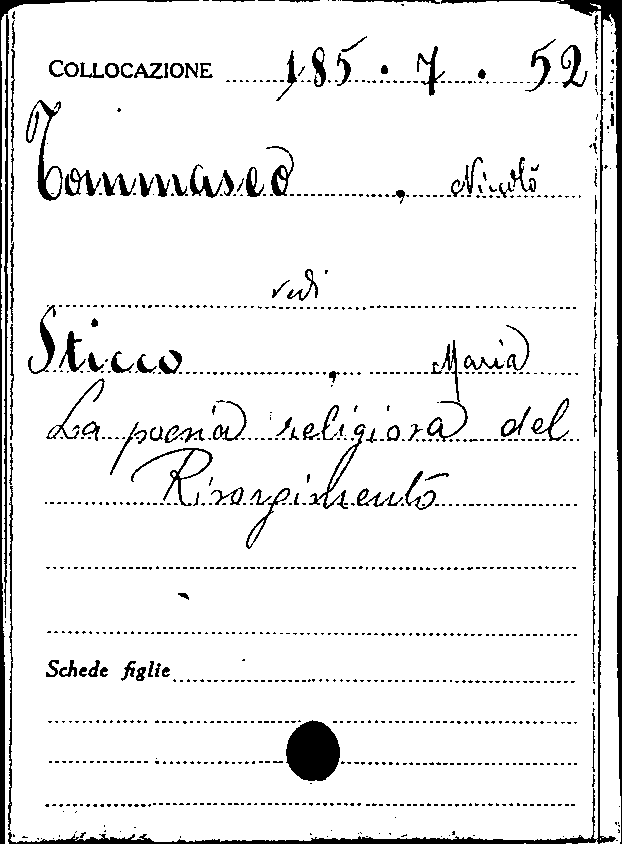 COLLOCAZIONE 185 . 7 . 52
Tommaseo , Nicolò
vedi
Sticco , Maria
La poesia religiosa del
Risorgimento
Schede figlie